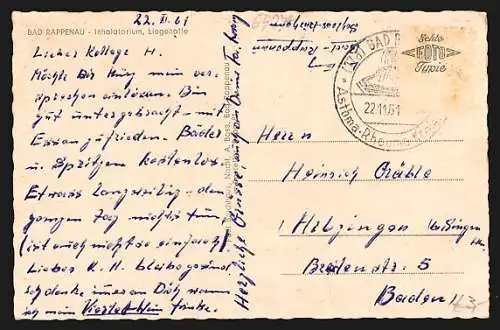 BAD RAPPENAU - Inhalatorium, Liegehalle
22. XI. 61
Lieber Kollege H.
Möchte Dir mein ver-
sprechen einlösen. Bin
gut untergebracht - mit
Essen zufrieden. Bäder
u. Spritzen kostenlos.
Etwas langweilig - den
ganzen Tag nichts tun,
(ist auch nicht so einfach)
Lieber K. H. bleibe gesund,
ich denke immer an Dich wenn
ich mein Viertel trinke.
Herzliche Grüsse auch an Deine
Bad Rappenau
BAD
22.11.61
Asthma-Rheuma
Echte
FOTO
Typie
Herrn
Heinrich
Hilzingen
5
Baden